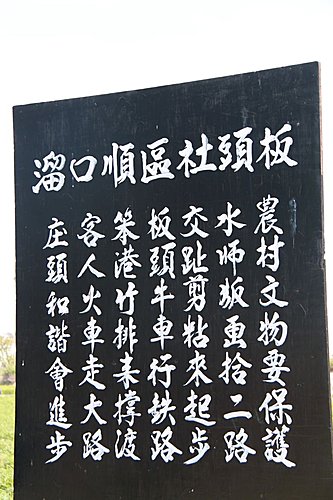 板頭社區順口溜
農村文物要保護
水師販魚拾二路
交趾剪粘來起步
板頭牛車行鉄路
笨港竹排來撐渡
客人火車走大路
庄頭和諧會進步